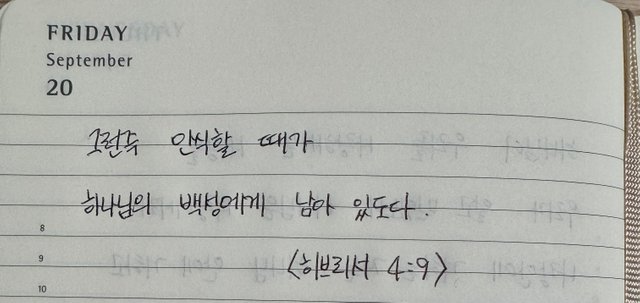 FRIDAY
September
20
그런즉 안식할 때가
하나님의 백성에게 남아 있도다.
8
<히브리서 4:9>
9
10